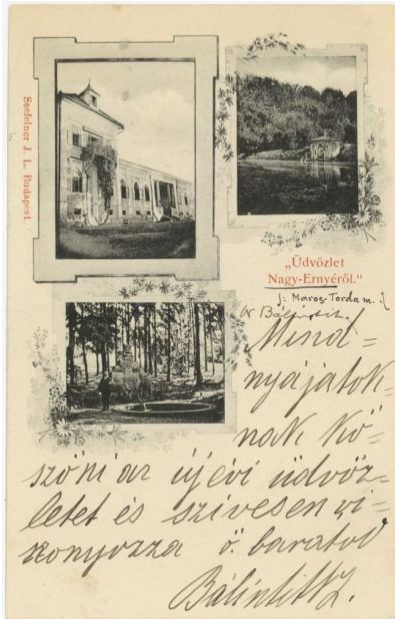 Seefelner J. L. Budapest
„Üdvözlet
Nagy-Ernyéről."
Maros-Torda m.
Mind-
nyájatok-
nak kö-
szöni az újévi üdvöz-
letet és szívesen vi-
szonyozza ő. barátod